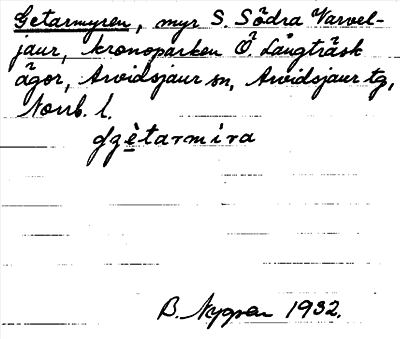 Getarmyren, myr S. Södra Varvel-
jaur, kronoparken Ö. Långträsk
ägor, Arvidsjaur sn, Arvidsjaur tg,
Norrb. l.
dzètarmira
B. Nygren 1932.